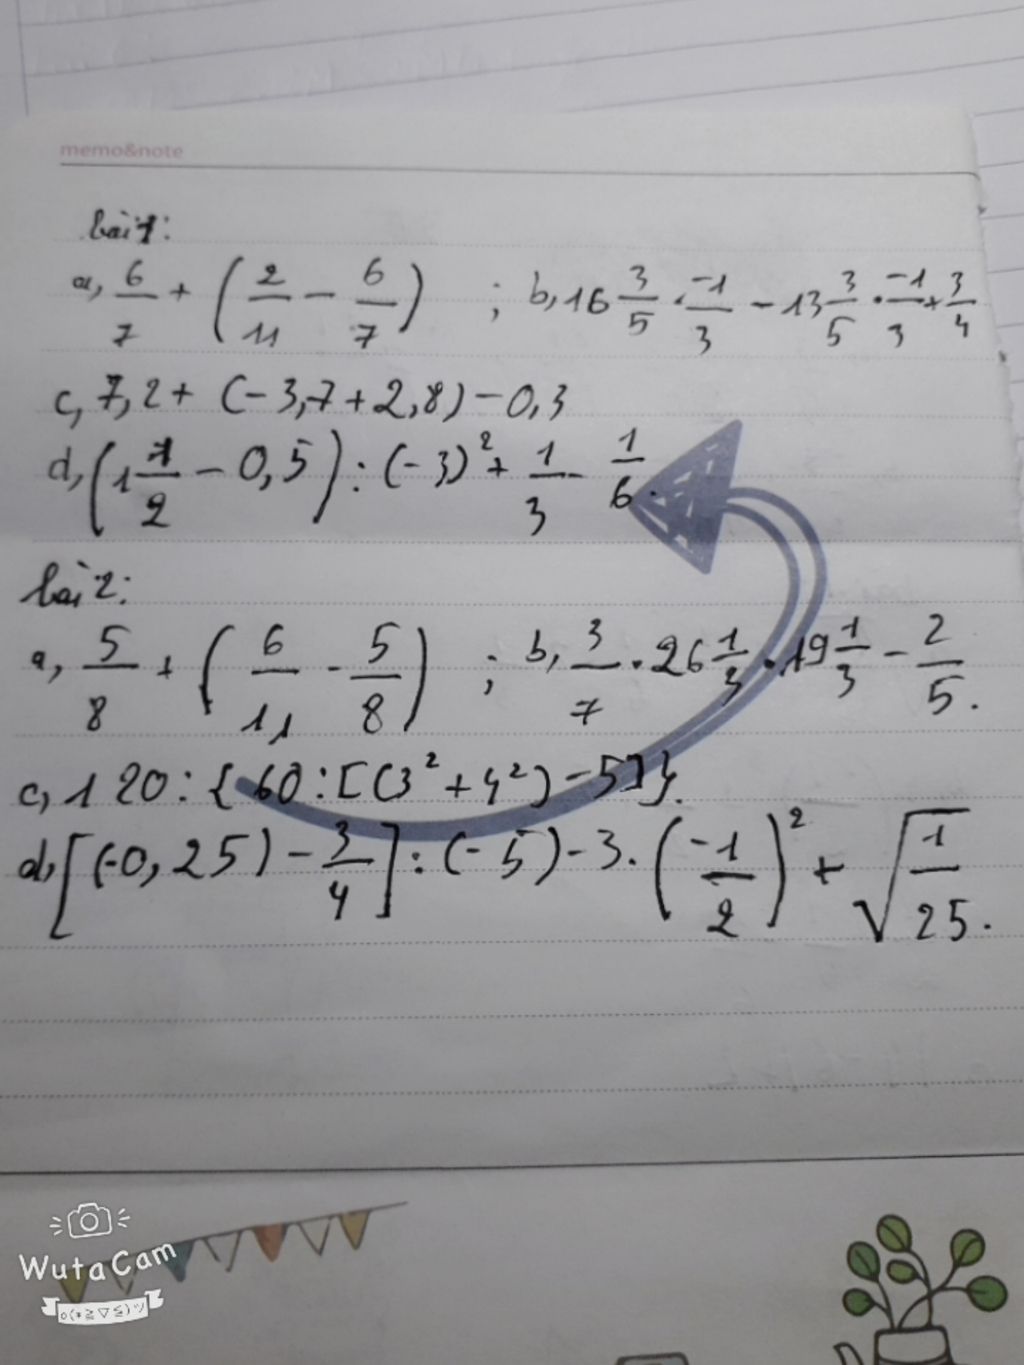 memo&note
bài 1:
a, 6/7 + (2/11 - 6/7) ; b, 16 3/5 . -1/3 - 13 3/5 . -1/3 + 3/4
c, 7,2 + (-3,7 + 2,8) - 0,3
d, (1 1/2 - 0,5) : (-3)² + 1/3 - 1/6.
bài 2:
a, 5/8 + (6/11 - 5/8) ; b, 3/7 . 26 1/3 . 19 1/3 - 2/5.
c, 120 : {60 : [(3² + 4²) - 5]}.
d, [(-0,25) - 3/4] : (-5) - 3. (-1/2)² + √1/25.
WutaCam
o(*≧▽≦)ツ